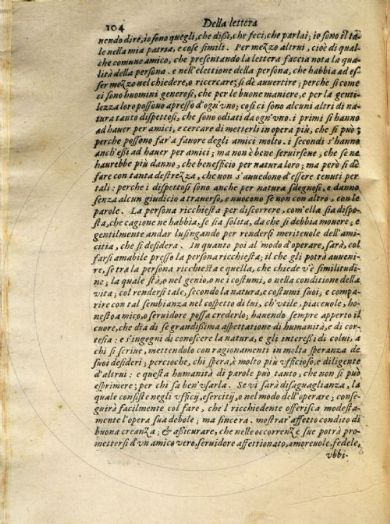 104 Della lettera
nendo dire, io sono quegli, che dissi, che feci, che parlai; io sono il ta-
le nella mia patria, e cose simili. Per mezzo altrui, cioè di qual-
che comune amico, che presentando la lettera faccia nota la qua-
lità della persona. e nell'elettione della persona, che habbia ad es-
ser mezzo nel chiedere, o ricercare; si dè auuertire; perche si come
ci sono huomini generosi, che per le buone maniere, e per la genti-
lezza loro possono apresso d'ogn'vno; così ci sono alcuni altri di na-
tura tanto dispettosi, che sono odiati da ogn'vno. i primi si hanno
ad hauer per amici, e cercare di metterli in opera più, che si può;
perche possono far a fauore degli amici molto. i secondi s'hanno
anch'essi ad hauer per amici; ma non è bene seruirsene, che se ne
haurebbe più danno, che beneficio per natura loro; ma però si dè
fare con tanta destrezza, che non s'auuedono d'essere tenuti per
tali; perche i dispettosi sono anche per natura sdegnosi, e danno
senza alcun giudicio a trauerso, e nuocono se non con altro, con le
parole. La persona ricchiesta per discorrere, com'ella sia dispo-
sta, che cagione ne habbia, se sia solita, da che si debbia mouere, e
gentilmente andar lusingando per rendersi meriteuole dell'ami-
citia, che si desidera. In quanto poi al modo d'operare, sarà, col
farsi amabile presso la persona ricchiesta; il che gli potrà auueni-
re, se trà la persona ricchiesta e quella, che chiede v'è similitudi-
ne; la quale stà, o nel genio, o ne i costumi, o nella conditione della
vita; col rendersi tale, secondo la natura, e costumi suoi, e compa-
rire con tal sembianza nel cospetto di lui, ch'vtile, piaceuole, ho-
nesto amico, o seruidore possa crederlo; hauendo sempre aperto il
cuore, che dia di se grandissima aspettatione di humanità, e di cor-
tesia: e s'ingegni di conoscere la natura, e gl' interessi di colui, a
chi si scriue, mettendolo con ragionamenti in molta speranza de
suoi desideri; percioche, chi spera, è molto più vfficioso, e diligente
d'altrui: e questa humanità di parole può tanto, che non si può
esprimere; per chi sa ben'vsarla. Se vi sarà disaguaglianza, la
quale consiste negli vfficij, esercitij, o nel modo dell'operare; conse-
guirà facilmente col fare, che il richiedente offerisca modesta-
mente l'opera sua debole; ma sincera. mostrar'affetto condito di
buona creanza; & assicurare, che nelle occorrenze sue potrà pro-
mettersi d'vn amico vero, seruidore affettionato, amoreuole, fedele,
vbbi-